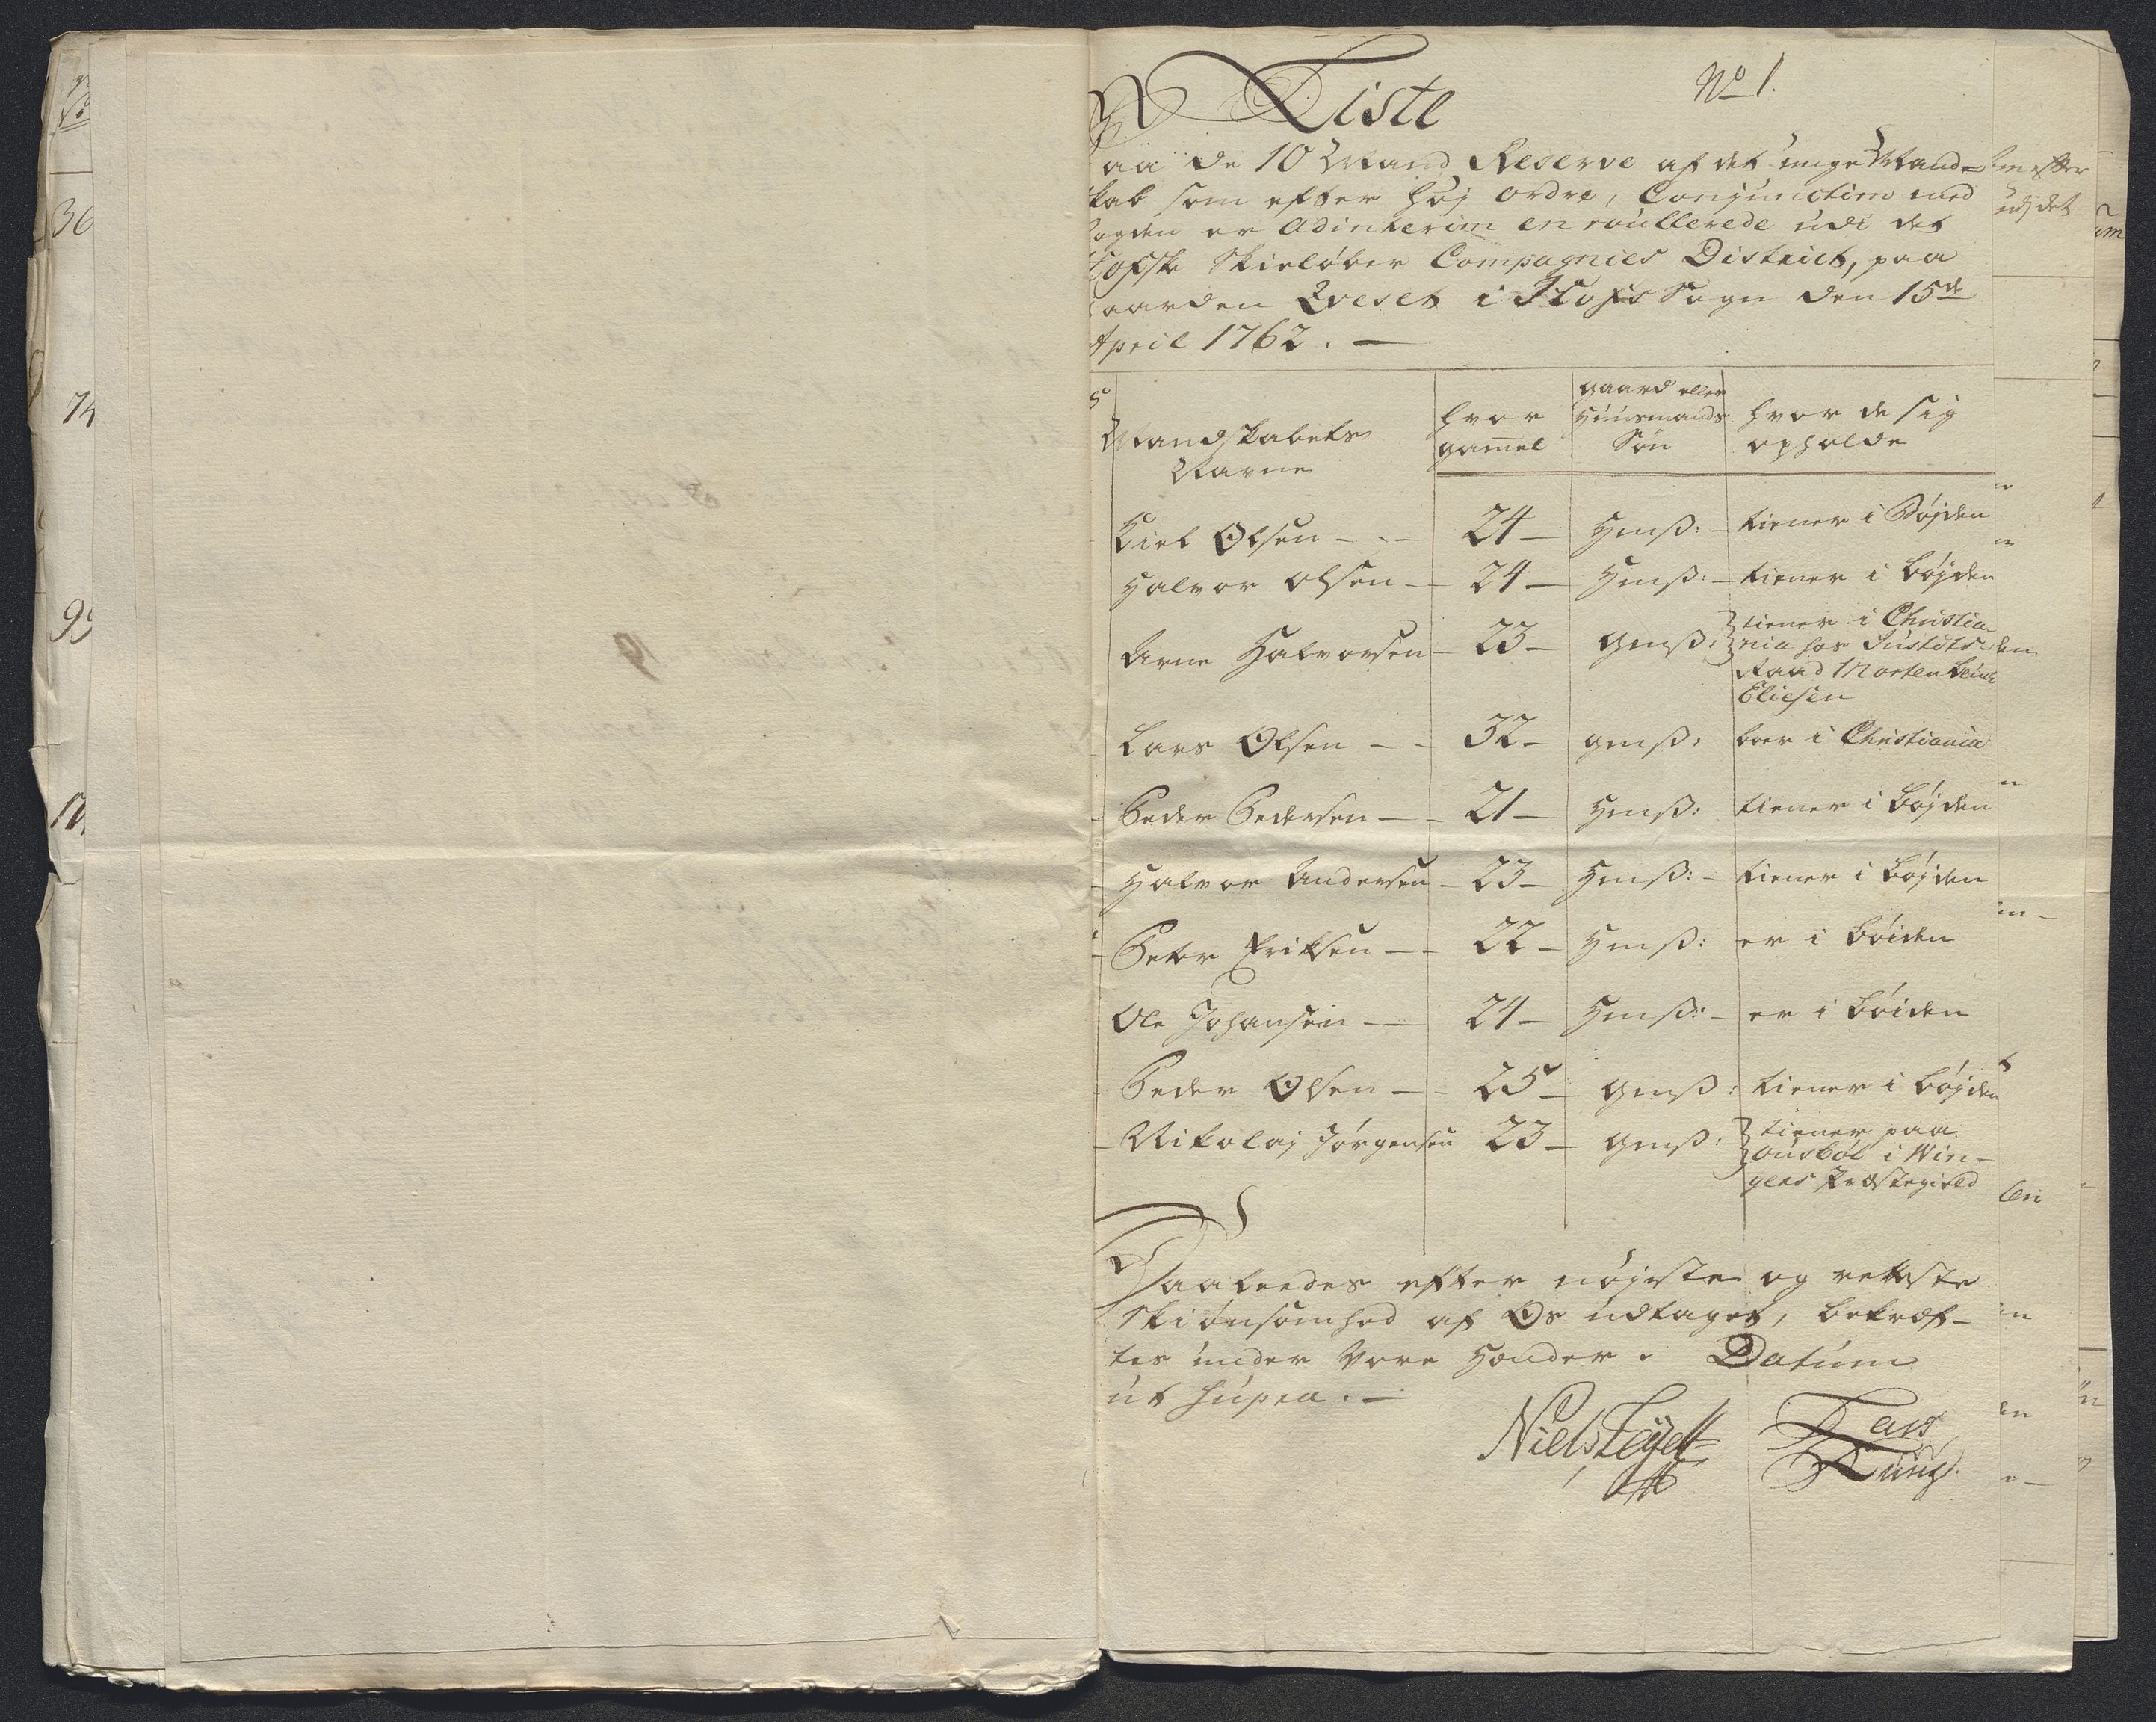 Liste
No 1.
aa de 10 Mand Reserve af det unge Mand=
kab som efter høj ordre, Conjunctim med
ogden er Adinterim en roullerede udi det
Skieløber Compagnies District, paa
aarden Qveset i Hofs Sogn den 15de
April 1762. —
Mandskabets
Navne
hvor
gamel
gaard eller
Huusmands
Søn
hvor de sig
opholde
Kiel Olsen - - - 24 - Hmß: - tiener i Bøjden
Halvor Olsen - 24 - Hmß: - tiener i bøjden
Arne Halvorsen - 23 - gmß: tiener i Christia
nia hos Justits-
Raad Morten
Eliesen
Lars Olsen - - 32 - gmß: boer i Christiania
Peder Pedersen - - 21 - Hmß: tiener i bøjden
Halvor Andersen - 23 - Hmß: - tiener i bøjden
Peter Eriksen - - 22 - Hmß: er i bøiden
Ole Johansen - 24 - Hmß: - er i bøiden
Peder Olsen - - 25 - gmß: tiener i bøjden
Nikolaj Jörgensen 23 - gmß: tiener paa
i Win-
gers Præstegield
Saaledes efter nøjeste og retteste
Skiønsomhed af Os udtaget, bekræf-
tes under Vore Hænder. Datum
ut supra. —
Niels
Lars